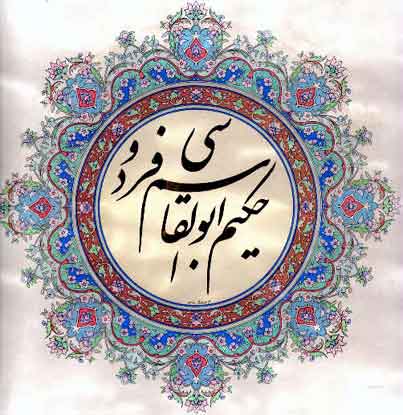 حکیم ابوالقاسم فردوسی